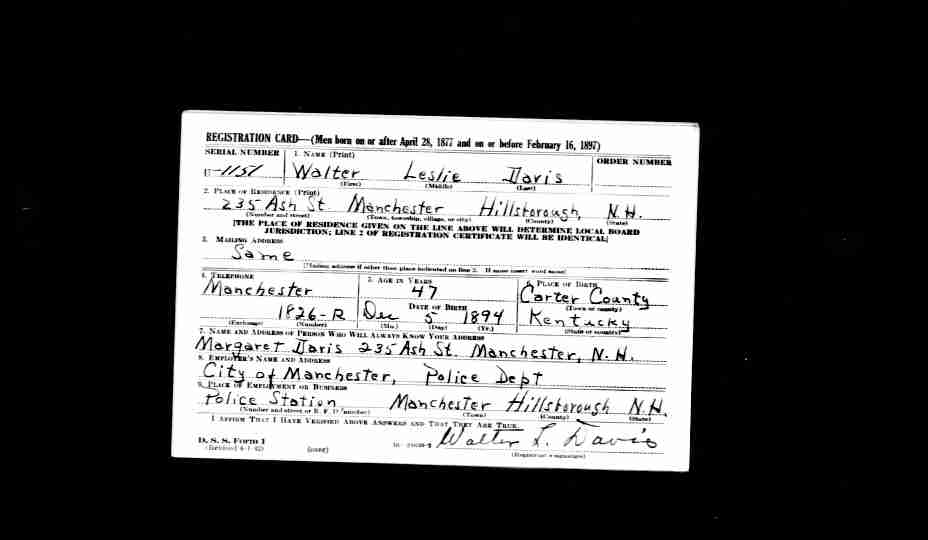 REGISTRATION CARD—(Men born on or after April 28, 1877 and on or before February 16, 1897)
SERIAL NUMBER 1. NAME (Print) ORDER NUMBER
U-1151 Walter Leslie Davis
(First) (Middle) (Last)
2. PLACE OF RESIDENCE (Print)
235 Ash St. Manchester Hillsborough, N.H.
(Number and street) (Town, township, village, or city) (County) (State)
[THE PLACE OF RESIDENCE GIVEN ON THE LINE ABOVE WILL DETERMINE LOCAL BOARD
JURISDICTION; LINE 2 OF REGISTRATION CERTIFICATE WILL BE IDENTICAL]
3. MAILING ADDRESS
Same
[Mailing address if other than place indicated on line 2. If same insert word same]
4. TELEPHONE 5. AGE IN YEARS 6. PLACE OF BIRTH
Manchester 47 Carter County
DATE OF BIRTH (Town or county)
1826-R Dec 5 1894 Kentucky
(Exchange) (Number) (Mo.) (Day) (Yr.) (State or country)
7. NAME AND ADDRESS OF PERSON WHO WILL ALWAYS KNOW YOUR ADDRESS
Margaret Davis 235 Ash St. Manchester, N.H.
8. EMPLOYER'S NAME AND ADDRESS
City of Manchester, Police Dept
9. PLACE OF EMPLOYMENT OR BUSINESS
Police Station Manchester Hillsborough N.H.
(Number and street or R. F. D. number) (Town) (County) (State)
I AFFIRM THAT I HAVE VERIFIED ABOVE ANSWERS AND THAT THEY ARE TRUE.
D. S. S. Form 1 Walter L. Davis
(Revised 4-1-42) (over) (Registrant's signature)